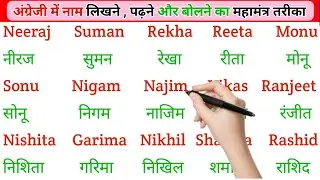 अंग्रेजी में नाम लिखने , पढ़ने और बोलने का महामंत्र तरीका
Neeraj Suman Rekha Reeta Monu
नीरज सुमन रेखा रीता मोनू
Sonu Nigam Najim Vikas Ranjeet
सोनू निगम नाजिम रंजीत
Nishita Garima Nikhil Rashid
निशिता गरिमा निखिल शमा राशिद